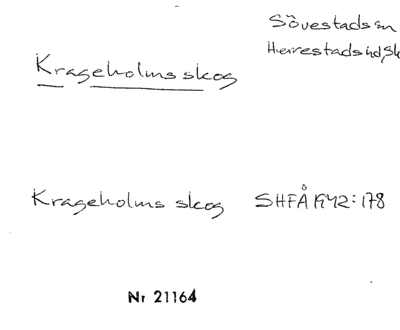 Sövestads sn
Herrestads hd, Sk
Krageholms skog
Krageholms skog SHFÅ 1942:178
Nr 21164